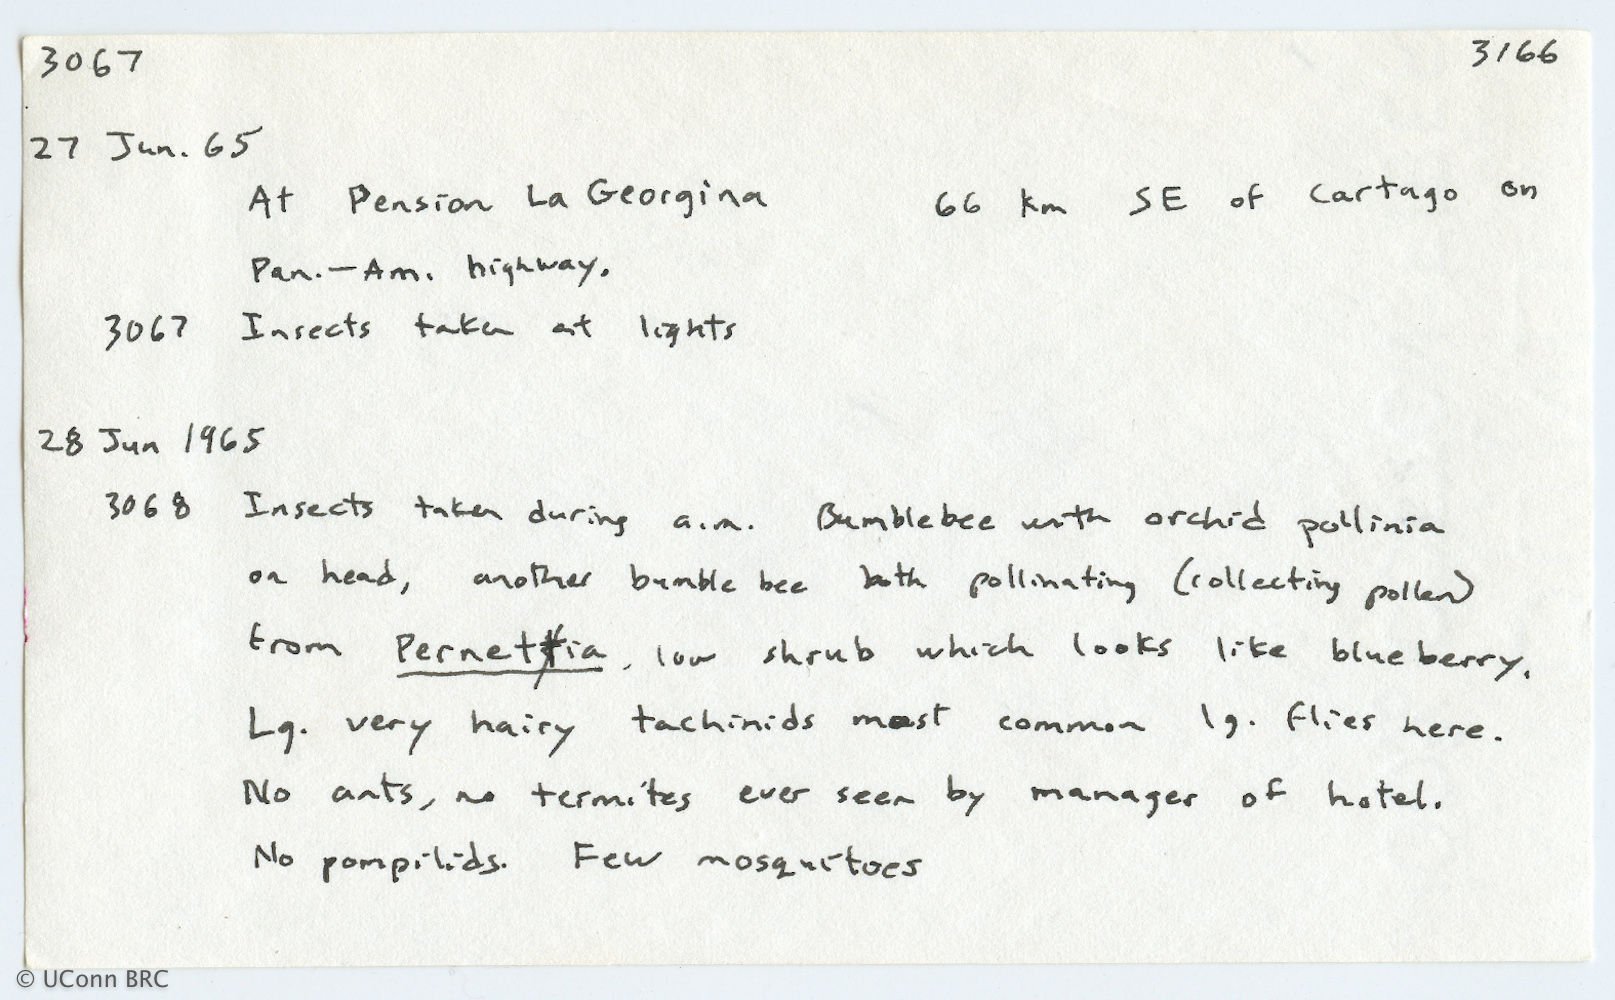 3067 3166
27 Jun. 65
At Pension La Georgina 66 km SE of Cartago on
Pan.-Am. highway.
3067 Insects taken at lights
28 Jun 1965
3068 Insects taken during a.m. Bumblebee with orchid pollinia
on head, another bumble bee both pollinating (collecting pollen)
from Pernettia, low shrub which looks like blueberry.
Lg. very hairy tachinids most common lg. flies here.
No ants, no termites ever seen by manager of hotel.
No pompilids. Few mosquitoes
© UConn BRC